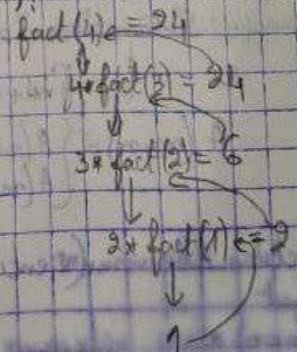 fact(4) = 24
4*fact(3) = 24
3*fact(2) = 6
2*fact(1) = 2
1